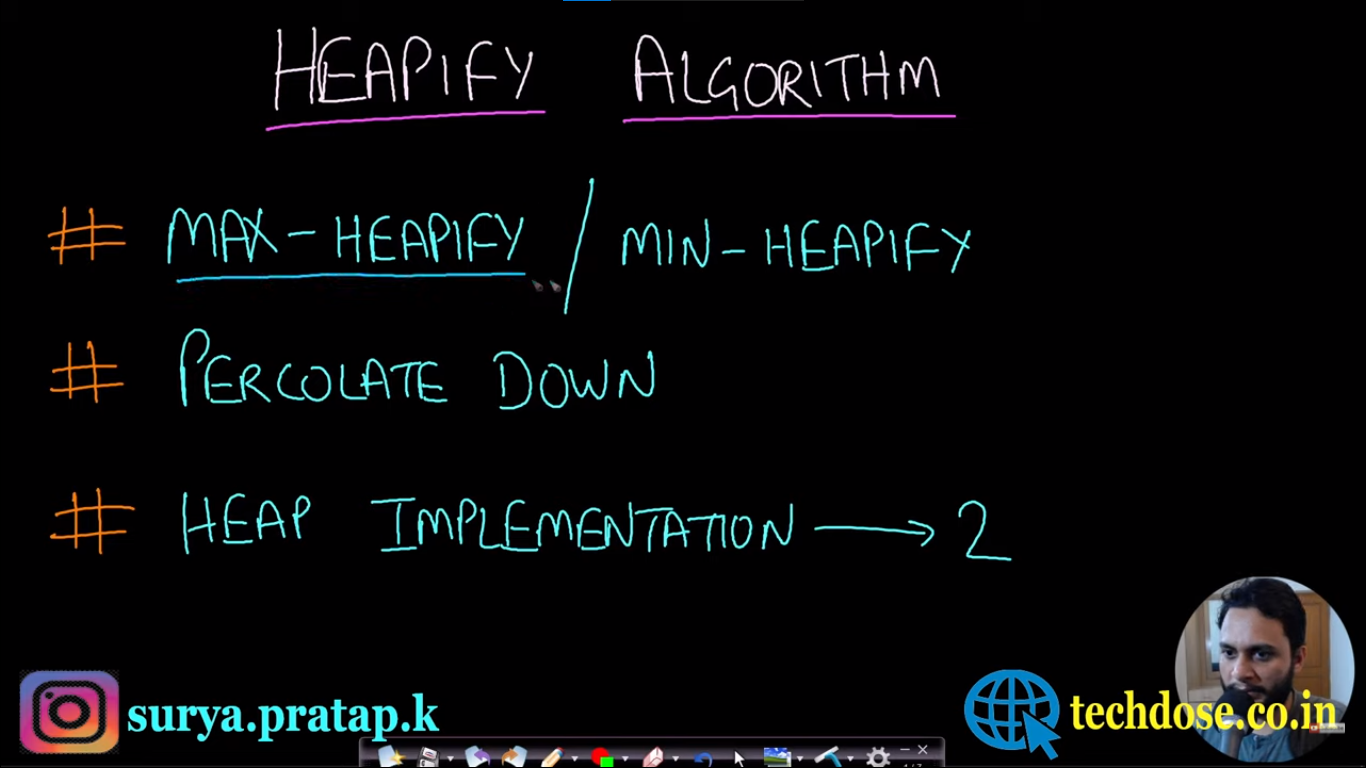 HEAPIFY ALGORITHM
# MAX-HEAPIFY / MIN-HEAPIFY
# PERCOLATE DOWN
# HEAP IMPLEMENTATION → 2
surya.pratap.k
techdose.co.in